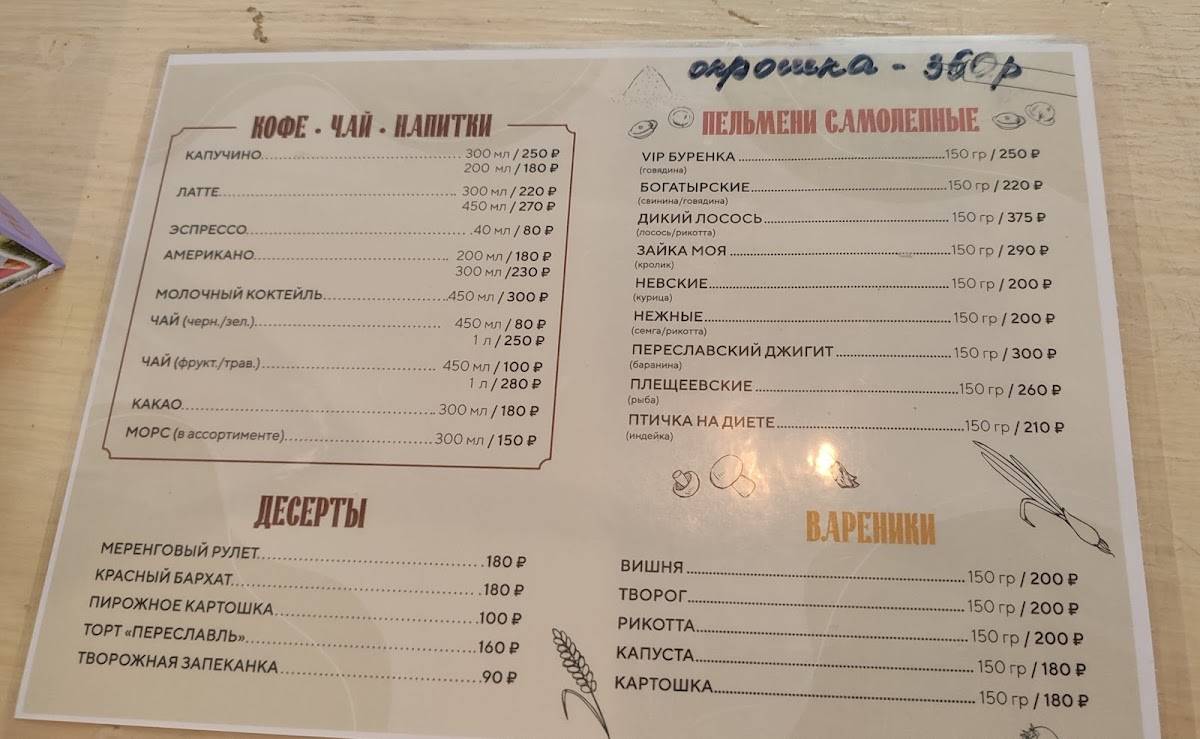 окрошка - 360р
КОФЕ · ЧАЙ · НАПИТКИ
КАПУЧИНО 300 мл / 250 ₽
200 мл / 180 ₽
ЛАТТЕ 300 мл / 220 ₽
450 мл / 270 ₽
ЭСПРЕССО 40 мл / 80 ₽
АМЕРИКАНО 200 мл / 180 ₽
300 мл /230 ₽
МОЛОЧНЫЙ КОКТЕЙЛЬ 450 мл / 300 ₽
ЧАЙ (черн./зел.) 450 мл / 80 ₽
1 л / 250 ₽
ЧАЙ (фрукт./трав.) 450 мл / 100 ₽
1 л / 280 ₽
КАКАО 300 мл / 180 ₽
МОРС (в ассортименте) 300 мл / 150 ₽
ДЕСЕРТЫ
МЕРЕНГОВЫЙ РУЛЕТ 180 ₽
КРАСНЫЙ БАРХАТ 180 ₽
ПИРОЖНОЕ КАРТОШКА 100 ₽
ТОРТ «ПЕРЕСЛАВЛЬ» 160 ₽
ТВОРОЖНАЯ ЗАПЕКАНКА 90 ₽
ПЕЛЬМЕНИ САМОЛЕПНЫЕ
VIP БУРЕНКА 150 гр / 250 ₽
(говядина)
БОГАТЫРСКИЕ 150 гр / 220 ₽
(свинина/говядина)
ДИКИЙ ЛОСОСЬ 150 гр / 375 ₽
(лосось/рикотта)
ЗАЙКА МОЯ 150 гр / 290 ₽
(кролик)
НЕВСКИЕ 150 гр / 200 ₽
(курица)
НЕЖНЫЕ 150 гр / 200 ₽
(семга/рикотта)
ПЕРЕСЛАВСКИЙ ДЖИГИТ 150 гр / 300 ₽
(баранина)
ПЛЕЩЕЕВСКИЕ 150 гр / 260 ₽
(рыба)
ПТИЧКА НА ДИЕТЕ 150 гр / 210 ₽
(индейка)
ВАРЕНИКИ
ВИШНЯ 150 гр / 200 ₽
ТВОРОГ 150 гр / 200 ₽
РИКОТТА 150 гр / 200 ₽
КАПУСТА 150 гр / 180 ₽
КАРТОШКА 150 гр / 180 ₽